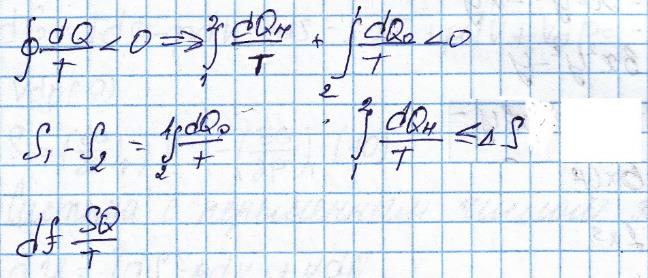 ∮ dQ/T < 0 ⇒ ₁∫² dQн/T + ₂∫¹ dQо/T < 0
S₁ - S₂ = ₂∫¹ dQо/T   ₁∫² dQн/T ≤ ΔS
dS = δQ/T